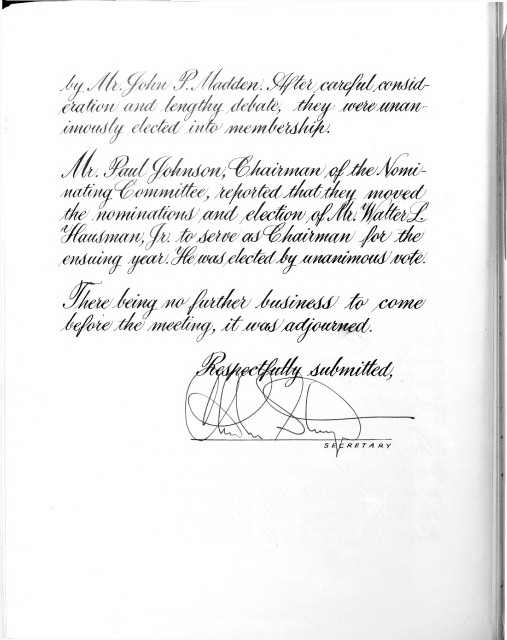 by Mr. John P. Madden. After careful consid-
eration and lengthy debate, they were unan-
imously elected into membership.
Mr. Paul Johnson, Chairman of the Nomi-
nating Committee, reported that they moved
the nominations and election of Mr. Walter L.
Hausman, Jr. to serve as Chairman for the
ensuing year. He was elected by unanimous vote.
There being no further business to come
before the meeting, it was adjourned.
Respectfully submitted,
SECRETARY